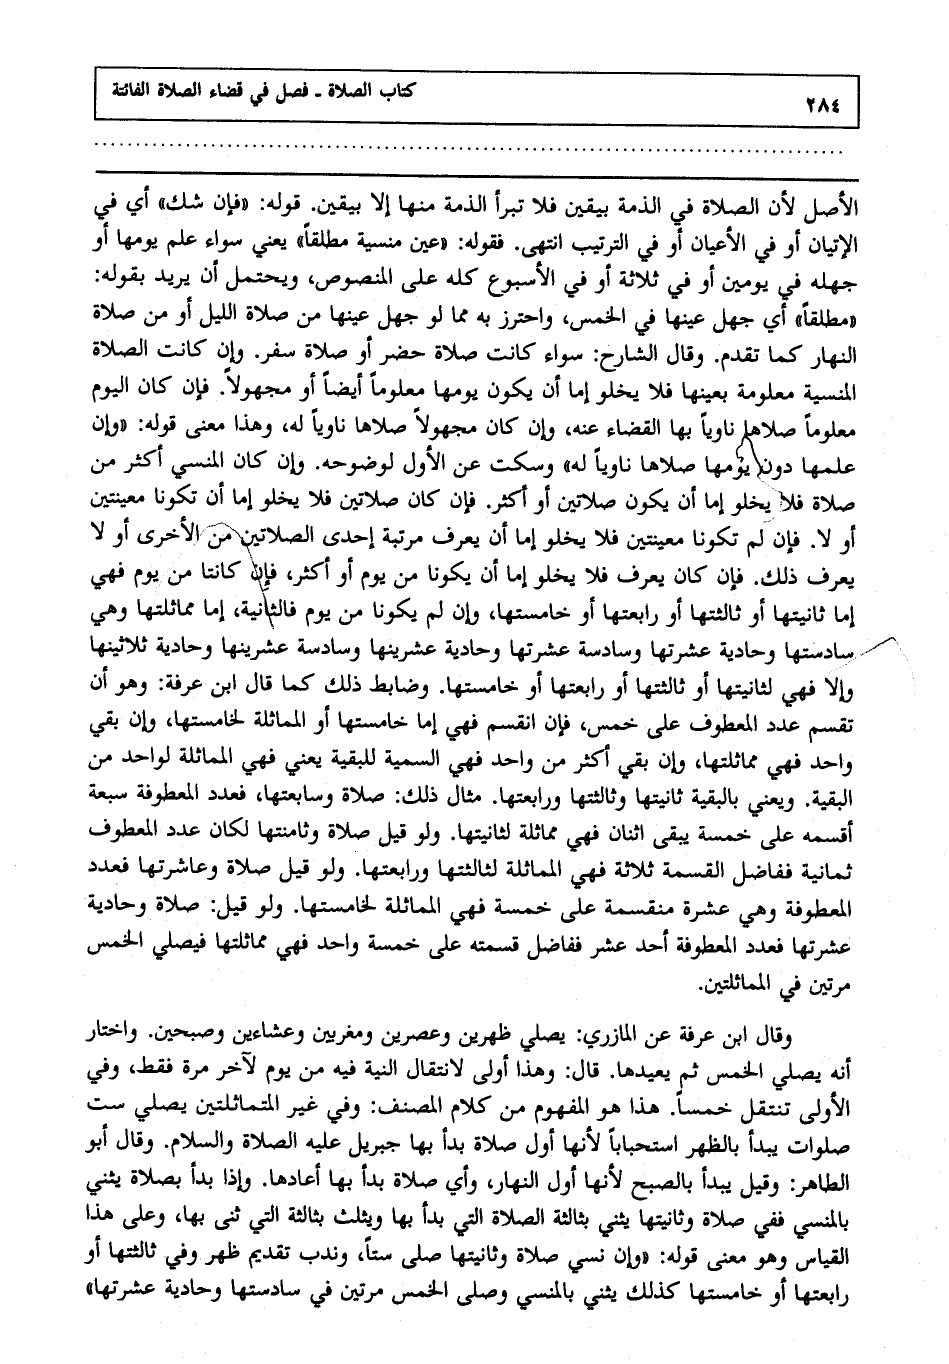 كتاب الصلاة ـ فصل في قضاء الصلاة الفائتة
٢٨٤
الأصل لأن الصلاة في الذمة بيقين فلا تبرأ الذمة منها إلا بيقين. قوله: «فإن شك» أي في
الإتيان أو في الأعيان أو في الترتيب انتهى. فقوله: «عين منسية مطلقاً» يعني سواء علم يومها أو
جهله في يومين أو في ثلاثة أو في الأسبوع كله على المنصوص، ويحتمل أن يريد بقوله:
«مطلقاً» أي جهل عينها في الخمس، واحترز به مما لو جهل عينها من صلاة الليل أو من صلاة
النهار كما تقدم. وقال الشارح: سواء كانت صلاة حضر أو صلاة سفر. وإن كانت الصلاة
المنسية معلومة بعينها فلا يخلو إما أن يكون يومها معلوماً أيضاً أو مجهولاً. فإن كان اليوم
معلوماً صلاها ناوياً بها القضاء عنه، وإن كان مجهولاً صلاها ناوياً له، وهذا معنى قوله: «وإن
علمها دون يومها صلاها ناوياً له» وسكت عن الأول لوضوحه. وإن كان المنسي أكثر من
صلاة فلا يخلو إما أن يكون صلاتين أو أكثر. فإن كان صلاتين فلا يخلو إما أن تكونا معينتين
أو لا. فإن لم تكونا معينتين فلا يخلو إما أن يعرف مرتبة إحدى الصلاتين من الأخرى أو لا
يعرف ذلك. فإن كان يعرف فلا يخلو إما أن يكونا من يوم أو أكثر، فإن كانتا من يوم فهي
إما ثانيتها أو ثالثتها أو رابعتها أو خامستها، وإن لم يكونا من يوم فالثانية، إما مماثلتها وهي
سادستها وحادية عشرتها وسادسة عشرتها وحادية عشرينها وسادسة عشرينها وحادية ثلاثينها
وإلا فهي لثانيتها أو ثالثتها أو رابعتها أو خامستها. وضابط ذلك كما قال ابن عرفة: وهو أن
تقسم عدد المعطوف على خمس، فإن انقسم فهي إما خامستها أو المماثلة لخامستها، وإن بقي
واحد فهي مماثلتها، وإن بقي أكثر من واحد فهي السمية للبقية يعني فهي المماثلة لواحد من
البقية. ويعني بالبقية ثانيتها وثالثتها ورابعتها. مثال ذلك: صلاة وسابعتها، فعدد المعطوفة سبعة
أقسمه على خمسة يبقى اثنان فهي مماثلة لثانيتها. ولو قيل صلاة وثامنتها لكان عدد المعطوف
ثمانية ففاضل القسمة ثلاثة فهي المماثلة لثالثتها ورابعتها. ولو قيل صلاة وعاشرتها فعدد
المعطوفة وهي عشرة منقسمة على خمسة فهي المماثلة لخامستها. ولو قيل: صلاة وحادية
عشرتها فعدد المعطوفة أحد عشر ففاضل قسمته على خمسة واحد فهي مماثلتها فيصلي الخمس
مرتين في المماثلتين.
وقال ابن عرفة عن المازري: يصلي ظهرين وعصرين ومغربين وعشاءين وصبحين. واختار
أنه يصلي الخمس ثم يعيدها. قال: وهذا أولى لانتقال النية فيه من يوم لآخر مرة فقط، وفي
الأولى تنتقل خمساً. هذا هو المفهوم من كلام المصنف: وفي غير المتماثلتين يصلي ست
صلوات يبدأ بالظهر استحباباً لأنها أول صلاة بدأ بها جبريل عليه الصلاة والسلام. وقال أبو
الطاهر: وقيل يبدأ بالصبح لأنها أول النهار، وأي صلاة بدأ بها أعادها. وإذا بدأ بصلاة يثني
بالمنسي ففي صلاة وثانيتها يثني بثالثة الصلاة التي بدأ بها ويثلث بثالثة التي ثنى بها، وعلى هذا
القياس وهو معنى قوله: «وإن نسي صلاة وثانيتها صلى ستاً، وندب تقديم ظهر وفي ثالثتها أو
رابعتها أو خامستها كذلك يثني بالمنسي وصلى الخمس مرتين في سادستها وحادية عشرتها»